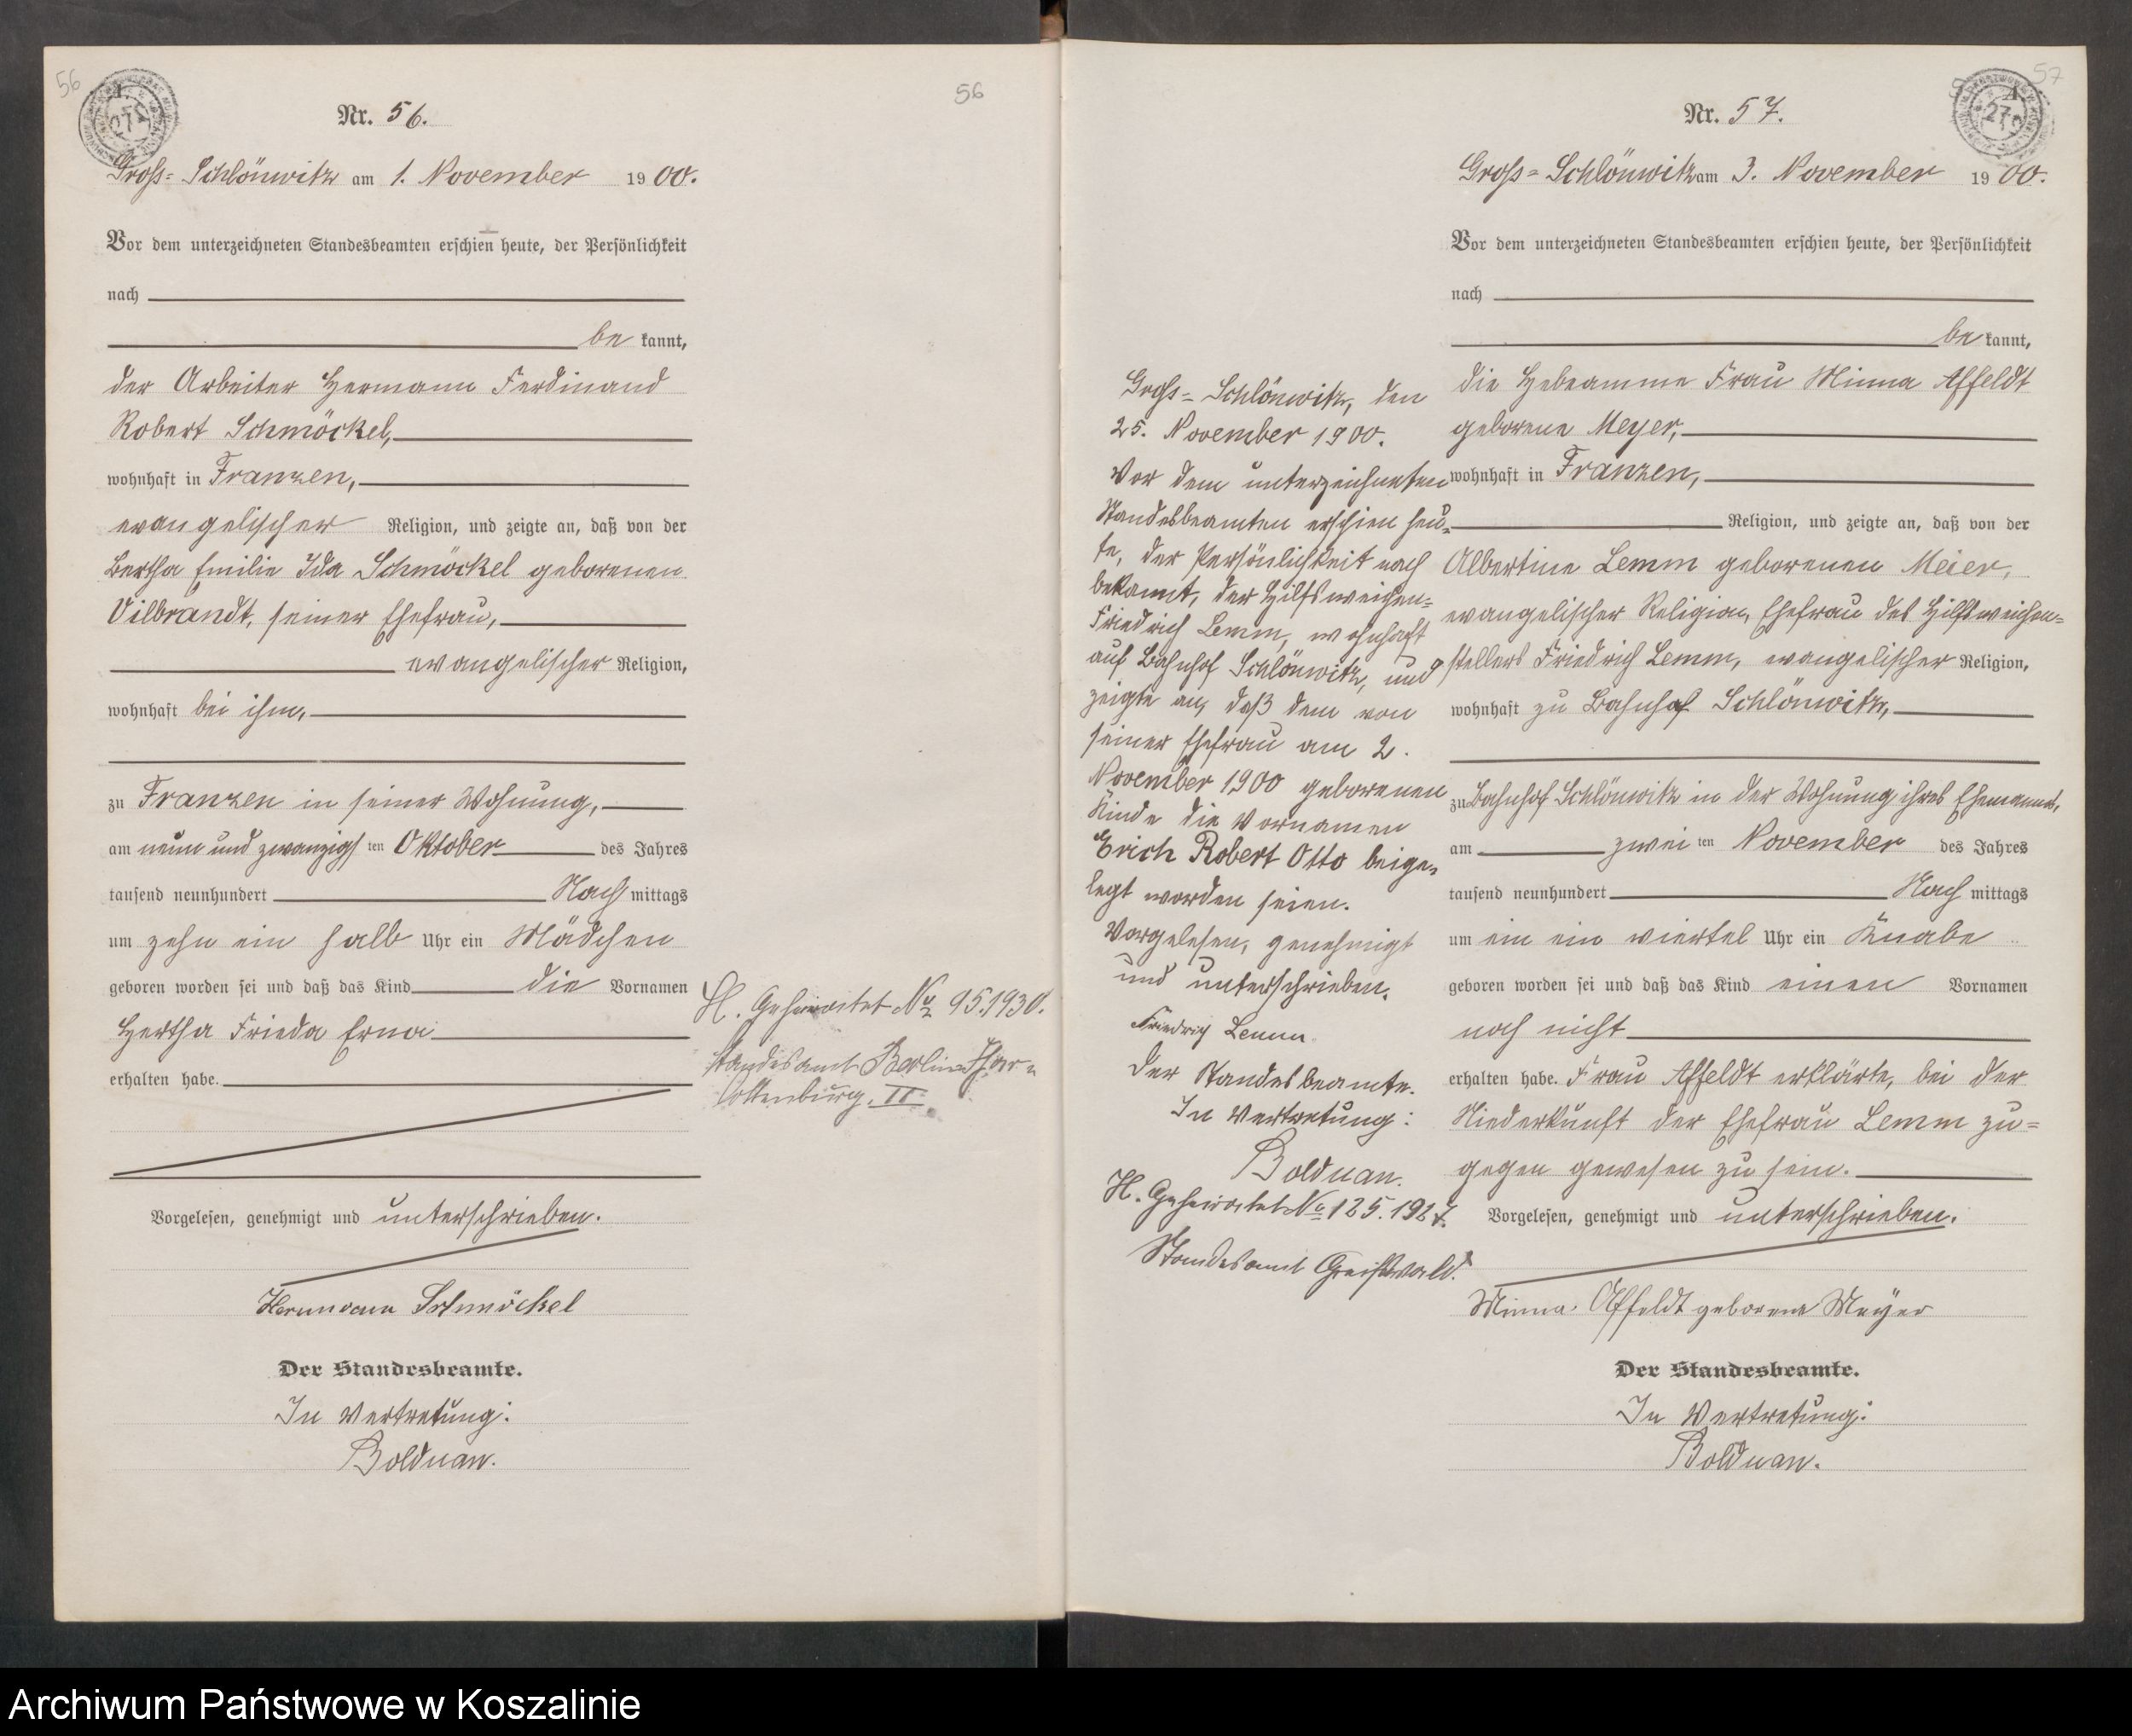 56
A.
Nr. 56.
Groß-Schlönwitz am 1. November 1900.
Vor dem unterzeichneten Standesbeamten erschien heute, der Persönlichkeit
nach
be kannt,
der Arbeiter Hermann Ferdinand
Robert Schmöckel,
wohnhaft in Franzen,
evangelischer Religion, und zeigte an, daß von der
Bertha Emilie Ida Schmöckel geborenen
Vilbrandt, seiner Ehefrau,
evangelischer Religion,
wohnhaft bei ihm,
zu Franzen in seiner Wohnung,
am neun und zwanzigsten Oktober des Jahres
tausend neunhundert Nachmittags
um zehn ein halb Uhr ein Mädchen
geboren worden sei und daß das Kind die Vornamen
Hertha Frieda Erna
erhalten habe.
Vorgelesen, genehmigt und unterschrieben.
Hermann Schmöckel
Der Standesbeamte.
In Vertretung:
Bolduan.
56
H. Geheiratet Nr. 95.1930.
Standesamt Berlin-Char-
lottenburg. II
Groß-Schlönwitz, den
25. November 1900.
Vor dem unterzeichneten
Standesbeamten erschien heu-
te, der Persönlichkeit nach
bekannt, der Hilfsweichen-
Friedrich Lemm, wohnhaft
auf Bahnhof Schlönwitz, und
zeigte an, daß dem von
seiner Ehefrau am 2.
November 1900 geborenen
Kinde die Vornamen
Erich Robert Otto beige-
legt worden seien.
Vorgelesen, genehmigt
und unterschrieben.
Friedrich Lemm
Der Standesbeamte.
In Vertretung:
Bolduan.
H. Geheiratet Nr. 125.1927.
Standesamt Greifswald.
57
A.
Nr. 57.
Groß-Schlönwitz am 3. November 1900.
Vor dem unterzeichneten Standesbeamten erschien heute, der Persönlichkeit
nach
be kannt,
die Hebeamme Frau Minna Affeldt
geborene Meyer,
wohnhaft in Franzen,
Religion, und zeigte an, daß von der
Albertine Lemm geborenen Meier,
evangelischer Religion, Ehefrau des Hilfsweichen-
stellers Friedrich Lemm, evangelischer Religion,
wohnhaft zu Bahnhof Schlönwitz,
zu Bahnhof Schlönwitz in der Wohnung ihres Ehemannes,
am zweiten November des Jahres
tausend neunhundert Nachmittags
um ein ein viertel Uhr ein Knabe
geboren worden sei und daß das Kind einen Vornamen
noch nicht
erhalten habe. Frau Affeldt erklärte, bei der
Niederkunft der Ehefrau Lemm zu-
gegen gewesen zu sein.
Vorgelesen, genehmigt und unterschrieben.
Minna Affeldt geborene Meyer
Der Standesbeamte.
In Vertretung:
Bolduan.
Archiwum Państwowe w Koszalinie